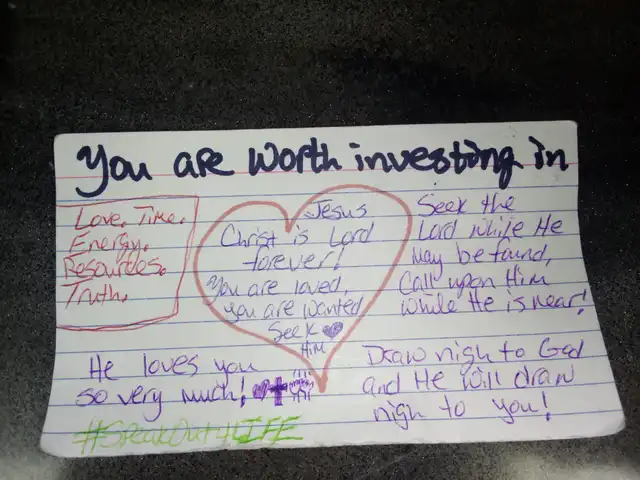 You are worth investing in
Love. Time.
Energy.
Resources.
Truth.
Jesus
Christ is Lord
forever!
You are loved,
you are wanted
Seek
Him
Seek the
Lord while He
may be found,
Call upon Him
while He is near!
He loves you
so very much!
Draw nigh to God
and He will draw
nigh to you!
#SpeakOut4LIFE